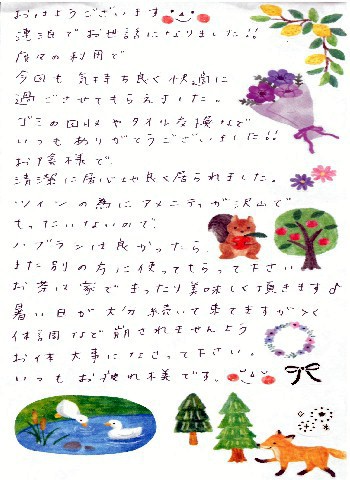 おはようございます
連泊でお世話になりました!!
度々の利用で
今回も気持ち良く快適に
過ごさせてもらえました。
ゴミの回収やタオル交換など
いつもありがとうございました!!
お陰様で
清潔に居心地良く居られました。
ツインの為にアメニティが沢山で
もったいないので
ハブラシは良かったら、
また別の方に使ってもらって下さい
お茶は家でまったり美味しく頂きます♪
暑い日が大分続いて来てますが
体調など崩されませんよう
お体大事になさって下さい。
いつもお疲れ様です。